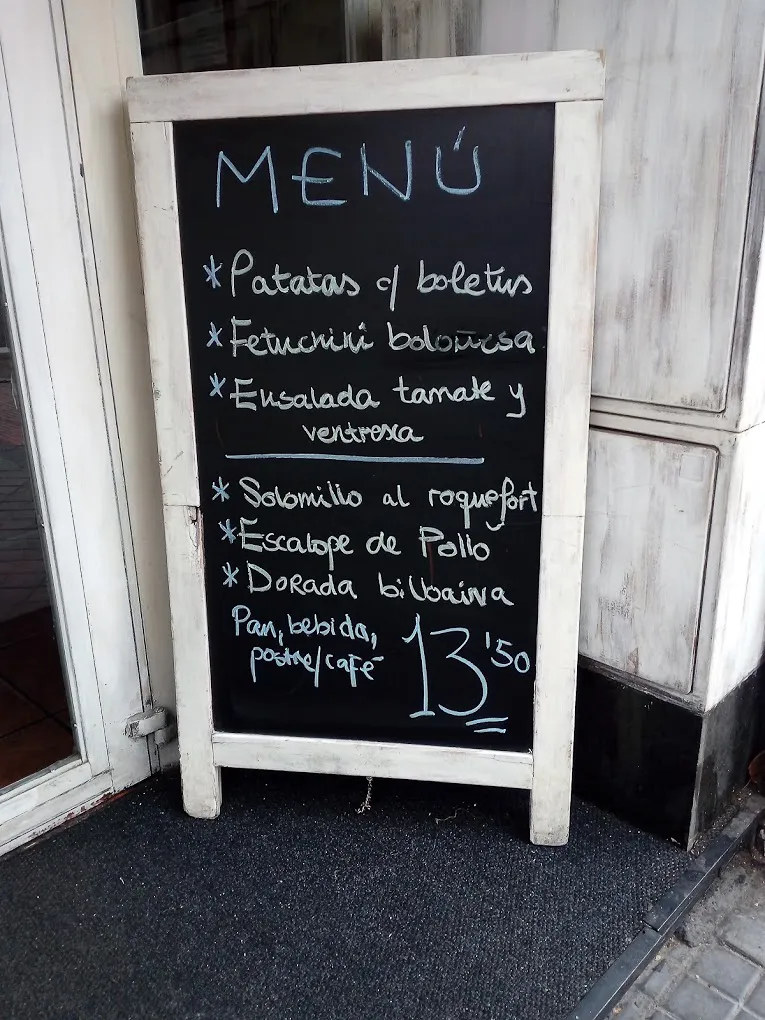 MENÚ
* Patatas c/ boletus
* Fetuchini boloñesa
* Ensalada tomate y
ventresca
* Solomillo al roquefort
* Escalope de Pollo
* Dorada bilbaina
Pan, bebida,
postre/café
13'50